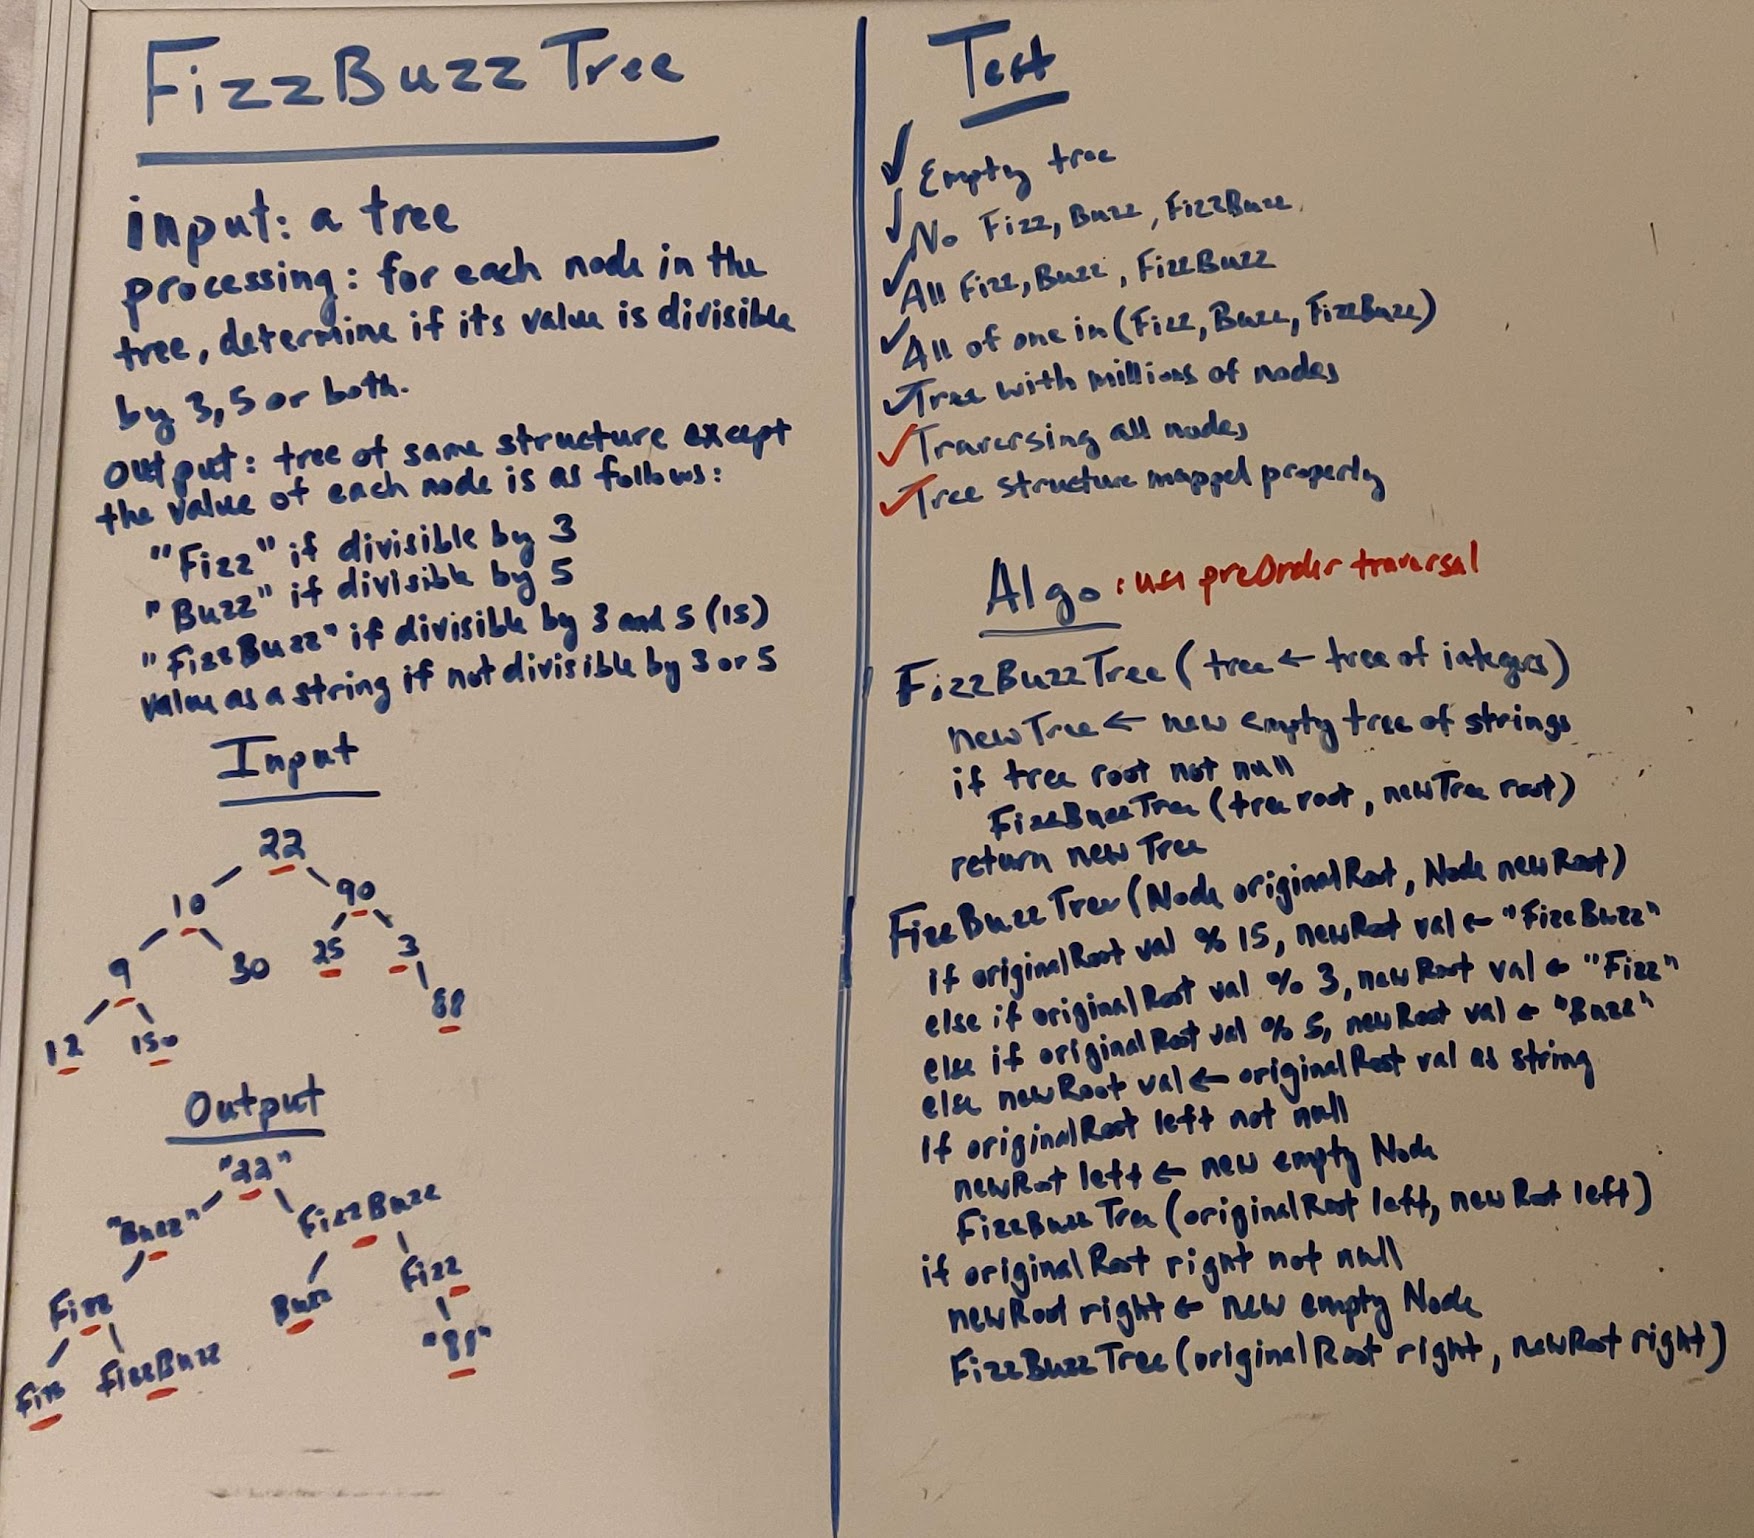 FizzBuzz Tree
input: a tree
processing: for each node in the
tree, determine if its value is divisible
by 3, 5 or both.
output: tree of same structure except
the value of each node is as follows:
"Fizz" if divisible by 3
"Buzz" if divisible by 5
"FizzBuzz" if divisible by 3 and 5 (15)
value as a string if not divisible by 3 or 5
Input
22
10 90
9 30 25 3
12 150 88
Output
"22"
"Buzz" FizzBuzz
Fizz Buzz Fizz
Fizz FizzBuzz "88"
Test
✓ Empty tree
✓ No Fizz, Buzz, FizzBuzz
✓ All Fizz, Buzz, FizzBuzz
✓ All of one in (Fizz, Buzz, FizzBuzz)
✓ Tree with millions of nodes
✓ Traversing all nodes
✓ Tree structure mapped properly
Algo : use preOrder traversal
FizzBuzzTree ( tree ← tree of integers)
newTree ← new empty tree of strings
if tree root not null
FizzBuzzTree (tree root, newTree root)
return newTree
FizzBuzzTree (Node originalRoot, Node newRoot)
if originalRoot val % 15, newRoot val ← "FizzBuzz"
else if originalRoot val % 3, newRoot val ← "Fizz"
else if originalRoot val % 5, newRoot val ← "Buzz"
else newRoot val ← originalRoot val as string
if originalRoot left not null
newRoot left ← new empty Node
FizzBuzzTree (originalRoot left, newRoot left)
if originalRoot right not null
newRoot right ← new empty Node
FizzBuzzTree (originalRoot right, newRoot right)